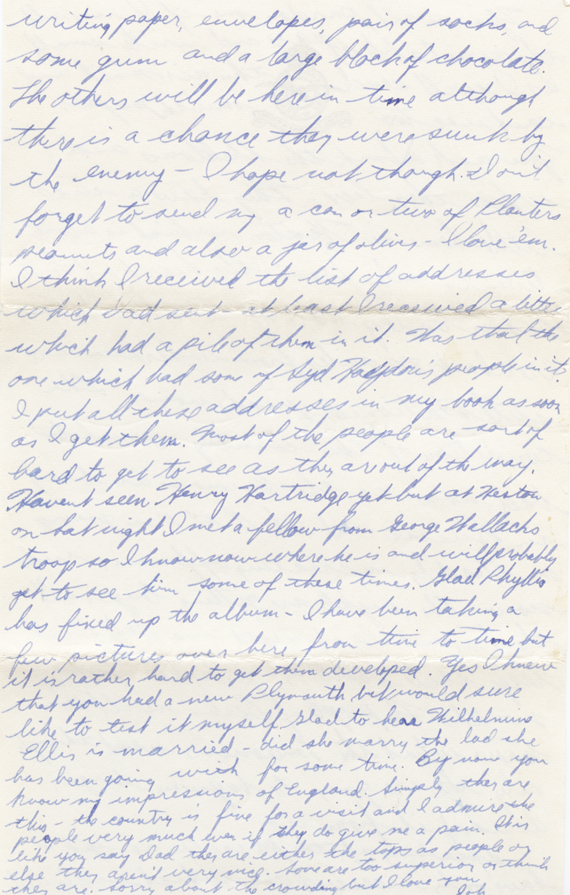 writing paper, envelopes, pair of socks, and
some gum and a large block of chocolate.
The others will be here in time although
there is a chance they were sunk by
the enemy - I hope not though. Don't
forget to send my a can or two of Planters
peanuts and also a jar of olives - I love 'em.
I think I received the list of addresses
which Dad sent at least I received a letter
which had a pile of them in it. Was that the
one which had some of Syd people in it?
I put all these addresses in my book as soon
as I get them. Most of the people are sort of
hard to get to see as they are out of the way.
Havent seen Henry Hartridge yet but at Keston
on hat night I met a fellow from George Wallachs
troop so I know now where he is and will probably
get to see him some of these times. Glad Phyllis
has fixed up the album - I have been taking a
few pictures over here from time to time but
it is rather hard to get them developed. Yes I knew
that you had a new Plymouth but would sure
like to test it myself. Glad to hear Wilhelmina
Ellis is married - did she marry the lad she
has been going with for some time. By now you
know my impressions of England. Simply they are
this - the country is fine for a visit and I admire the
people very much even if they do give me a pain. It is
like you say Dad they are either the tops as people or
else they aren't very nice. Some are too superior or think
they are. Sorry about the crowding but I love you
lots